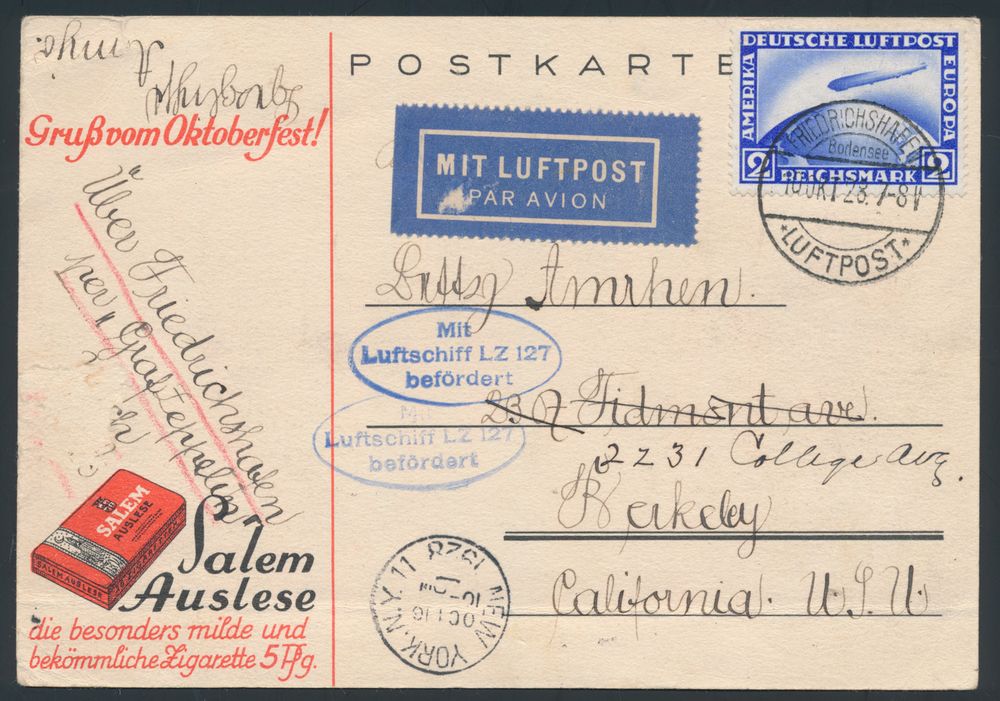 POSTKARTE
Gruß vom Oktoberfest!
DEUTSCHE LUFTPOST
AMERIKA
EUROPA
2 REICHSMARK 2
FRIEDRICHSHAFEN
Bodensee
28. 7-8V
*LUFTPOST*
MIT LUFTPOST
PAR AVION
Über Friedrichshafen
per „Graf Zeppelin"
Amrhen.
Mit
Luftschiff LZ 127
befördert
Mit
Luftschiff LZ 127
befördert
ave.
2231 College Ave.
Berkeley
California. U.S.A.
SALEM
AUSLESE
SALEM AUSLESE
Salem
Auslese
die besonders milde und
bekömmliche Zigarette 5 Pfg.
NEW YORK, N.Y. 11
1928
OCT 16